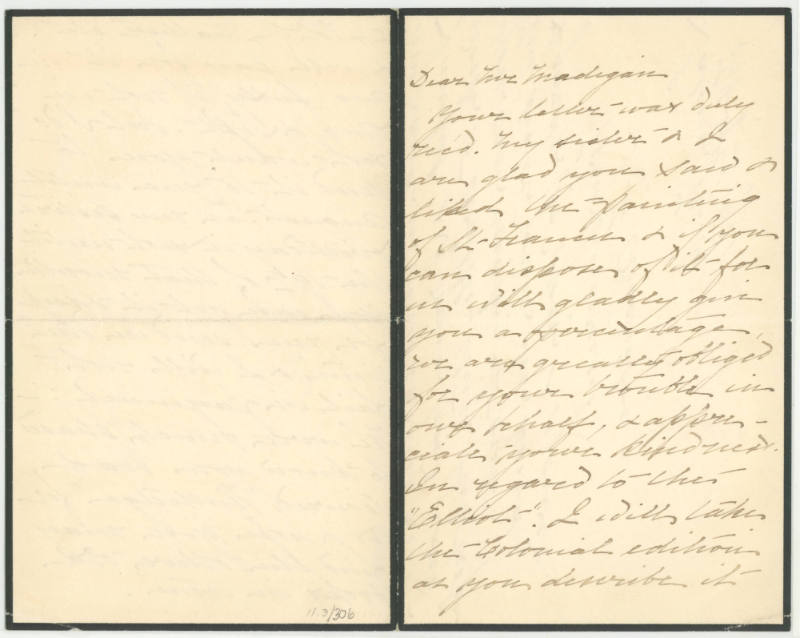 Dear Mr Madigan
Your letter was duly
rec'd. My sister & I
are glad you said &
liked the painting
of St Francis & if you
can dispose of it for
us will gladly give
you a percentage,
we are greatly obliged
for your trouble in
our behalf, & appre-
ciate your kindness.
In regard to the
"Elliot". I will take
the Colonial edition
as you describe it
11.3/306